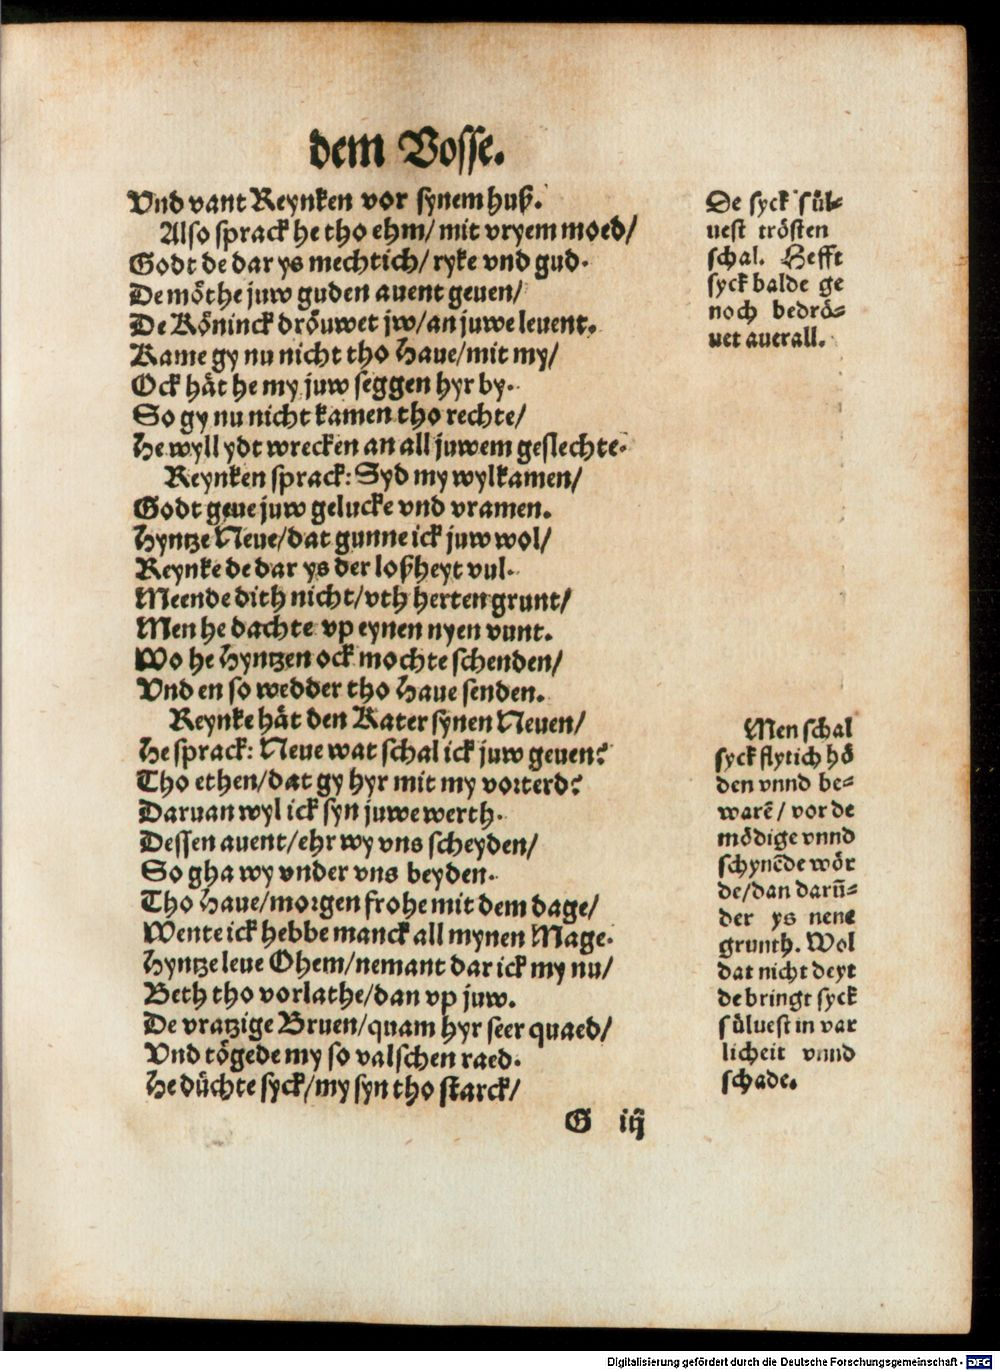 dem Vosse.
Vnd vant Reynken vor synem huß.
Also sprack he tho ehm/ mit vryem moed/
Godt de dar ys mechtich/ ryke vnd gud.
De möthe juw guden auent geuen/
De Köninck dröuwet jw/ an juwe leuent.
Kame gy nu nicht tho Haue/ mit my/
Ock hät he my juw seggen hyr by.
So gy nu nicht kamen tho rechte/
He wyll ydt wrecken an all juwem geslechte.
Reynken sprack: Syd my wylkamen/
Godt geue juw gelucke vnd vramen.
Hyntze Neue/ dat gunne ick juw wol/
Reynke de dar ys der loßheyt vul.
Meende dith nicht/ vth herten grunt/
Men he dachte vp eynen nyen vunt.
Wo he Hyntzen ock mochte schenden/
Vnd en so wedder tho Haue senden.
Reynke hät den Kater synen Neuen/
He sprack: Neue wat schal ick juw geuen?
Tho ethen/ dat gy hyr mit my vorterd?
Daruan wyl ick syn juwe werth.
Dessen auent/ ehr wy vns scheyden/
So gha wy vnder vns beyden.
Tho Haue/ morgen frohe mit dem dage/
Wente ick hebbe manck all mynen Mage.
Hyntze leue Ohem/ nemant dar ick my nu/
Beth tho vorlathe/ dan vp juw.
De vratzige Bruen/ quam hyr seer quaed/
Vnd tögede my so valschen raed.
He düchte syck/ my syn tho starck/
G iij
De syck sül⸗
uest trösten
schal. Hefft
syck balde ge
noch bedrö⸗
uet auerall.
Men schal
syck flytich hö
den vnnd be⸗
warē/ vor de
mödige vnnd
schynēde wör
de/ dan darū⸗
der ys nene
grunth. Wol
dat nicht deyt
de bringt syck
süluest in var
licheit vnnd
schade.
Digitalisierung gefördert durch die Deutsche Forschungsgemeinschaft - DFG